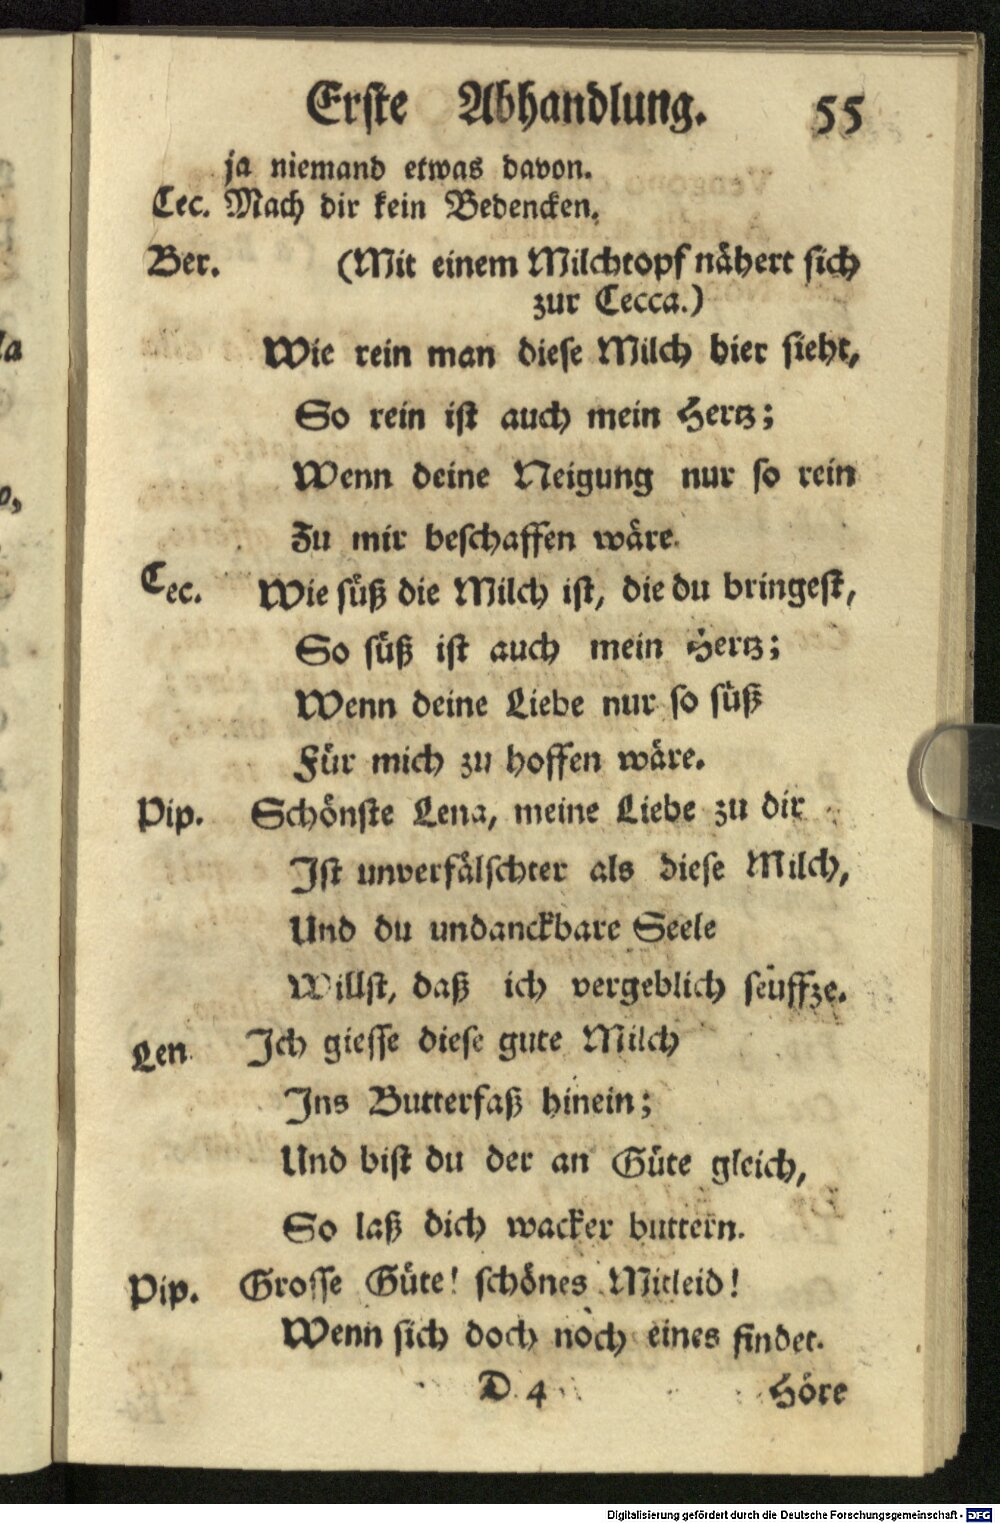 Erste Abhandlung. 55
ja niemand etwas davon.
Cec. Mach dir kein Bedencken.
Ber. (Mit einem Milchtopf nähert sich
zur Cecca.)
Wie rein man diese Milch hier sieht,
So rein ist auch mein Hertz;
Wenn deine Neigung nur so rein
Zu mir beschaffen wäre.
Cec. Wie süß die Milch ist, die du bringest,
So süß ist auch mein Hertz;
Wenn deine Liebe nur so süß
Für mich zu hoffen wäre.
Pip. Schönste Lena, meine Liebe zu dir
Ist unverfälschter als diese Milch,
Und du undanckbare Seele
Willst, daß ich vergeblich seuffze.
Len Ich giesse diese gute Milch
Ins Butterfaß hinein;
Und bist du der an Güte gleich,
So laß dich wacker buttern.
Pip. Grosse Güte! schönes Mitleid!
Wenn sich doch noch eines findet.
D 4 Höre
la
o,
Digitalisierung gefördert durch die Deutsche Forschungsgemeinschaft - DFG